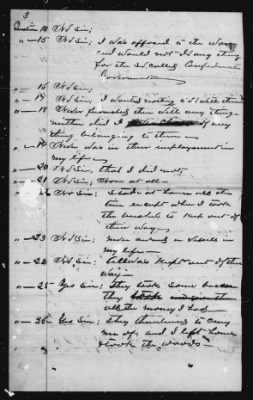 3
Question 14 No Sir;
" — 15 No Sir; I was opposed to the war
and would not do any thing
for the so called Confederate
Government
" — 16 No Sir;
" — 17 No Sir, I wanted nothing to do with them
" — 18 Never furnished them with any thing
neither did I of any
thing belonging to them
" — 19 Never was in their employment in
my life
" — 20 No Sir, that I did not
" — 21 No Sir; None at all
" — 22 No Sir; I staid at home all the
time except when I took
the woods to keep out of
their way.
" — 23 No Sir; never owned a vessel in
my life
" — 24 No Sir; Kept out of the
way
" — 25 Yes Sir; They took some
they
all the money I had
" — 26 Yes Sir; They threatened to carry
me off, and I left home
& took the woods